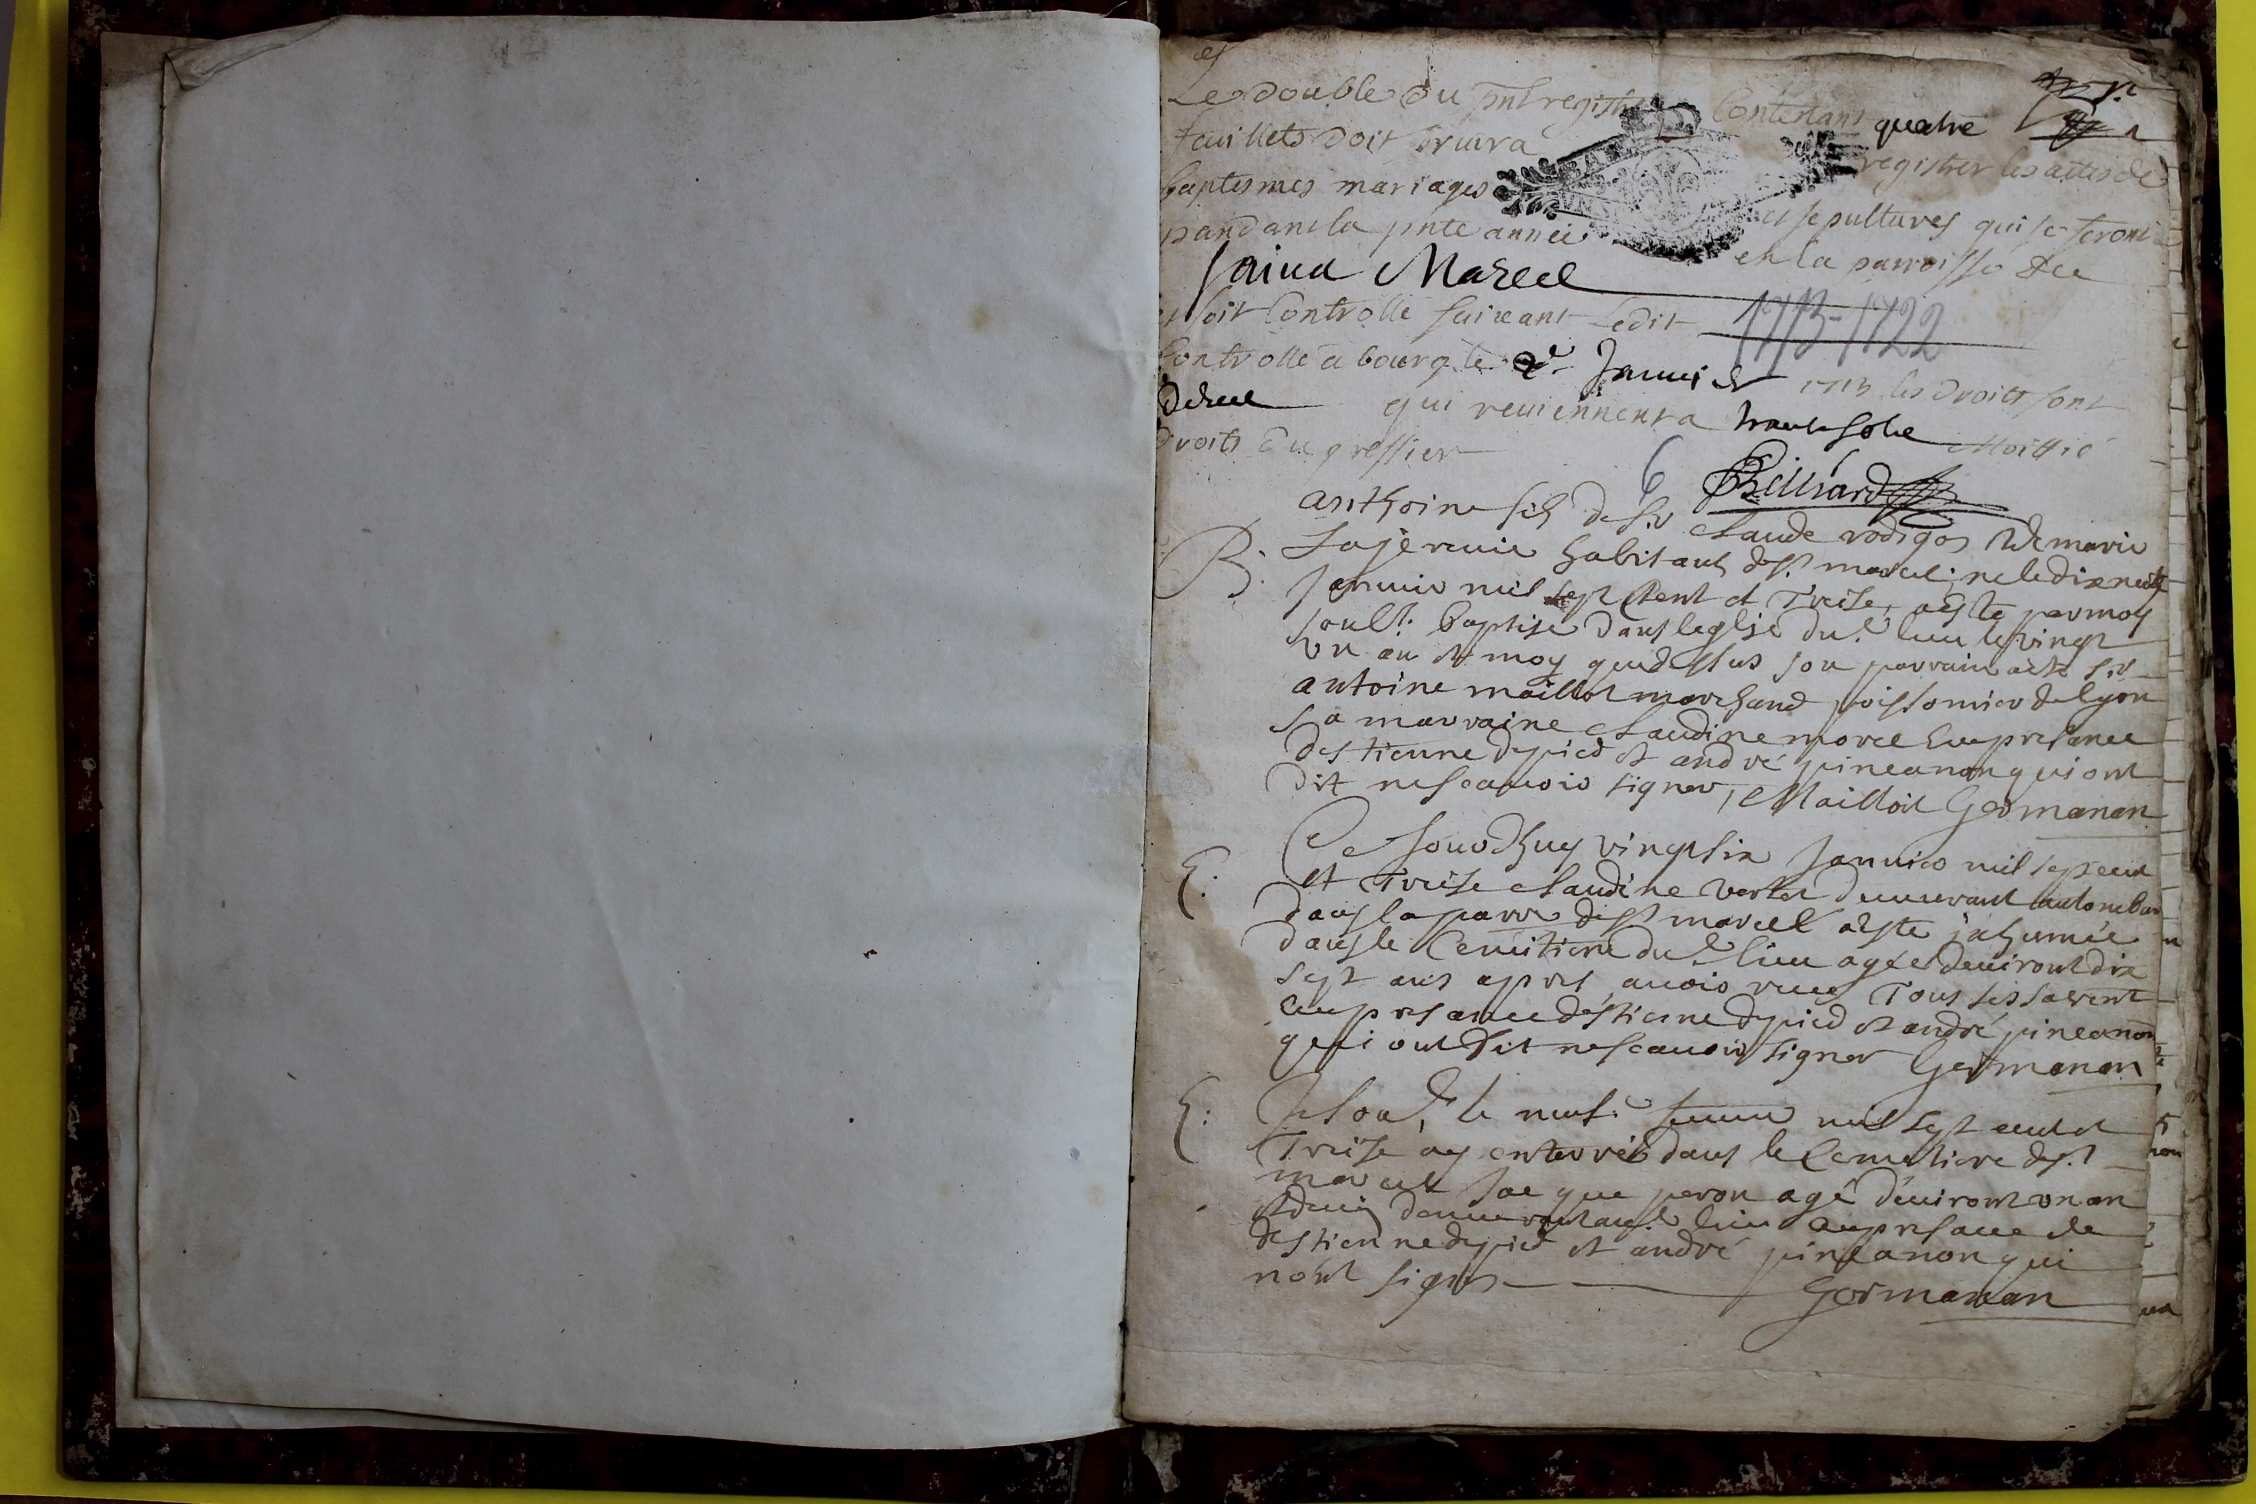 Le double du pnt registre Contenant quatre
feuillets doit servir a registrer les actes de
baptesmes mariages et sepultures qui se feront
pandant la pnte année en la parroisse de
Saint Marcel
et soit Controllé suivant ledit
1713-1722
Controllé a bourg le 2e Janvier 1713 les droits sont
qui reviennent a trante sols Moittié
droits du greffier
6 Billiard
B. anthoine fils de Sr Claude rodigos et de marie
habitants de St marcel, ne le dix neuf
janvier mil sept Cent et Treise, a esté par moy
soubt. baptisé dans leglise dud. lieu le vingt
un an et moy que dessus son parrain a esté Sr
antoine maillot marchand poissonnier de lyon
sa marraine Claudine morel en presance
destienne depied et andré pineanon qui ont
dit ne scavoir signer, Maillot Germanan
E. Ce jourdhuy vingt six janvier mil sept cent
et Treise Claudine demeurant
dans la parr. de St marcel a esté inhumée
dans le Cemitiere dud. lieu agée denviront dix
sept ans apres avoir receu Tous ses sacrent
en presance destienne depied et andré pineanon
qui ont dit ne scavoir signer Germanan
E. Je soud. le neuf. mil sept cent et
Treise ay enterré dans le Cemetiere de St
marcel Jacque peron agé denviront un an
et demi demeurant aud. lieu en presance de
destienne depied et andré pineanon qui
nont signés Germanan